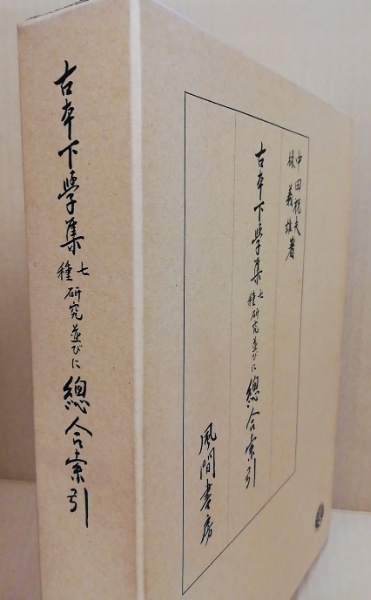 古本下学集七種研究並びに總合索引
中田祝夫
林義雄著
古本下学集七種研究並びに總合索引
風間書房